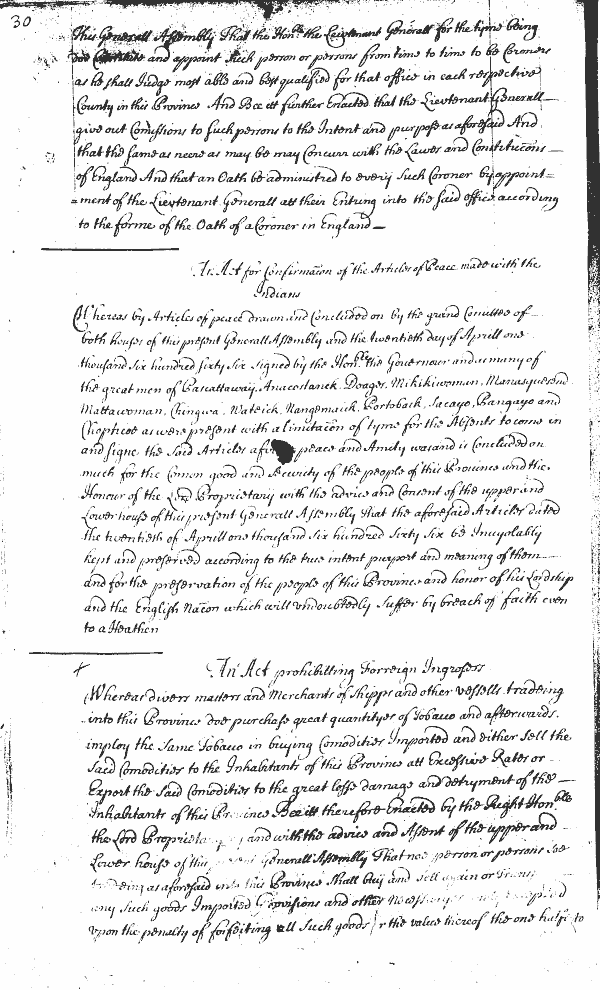 30
This Generall Assembly That the Hon:ble the Lieutenant Generall for the time being
doe and appoint such person or persons from time to time to be Coroners
as he shall Judge most able and best qualified for that office in each respective
County in this Province And Bee itt further Enacted that the Lievtenant Generall
give out Comissions to such persons to the Intent and purpose as aforesaid And
that the same as neere as may be may Concurr with the Lawes and Constitucons
of England And that an Oath be administred to every such Coroner by appoint-
=ment of the Lievtenant Generall att their Entring into the said office according
to the forme of the Oath of a Coroner in England
An Act for Confirmacon of the Articles of Peace made with the
Indians
Whereas by Articles of peace drawn and Concluded on by the grand Comittee of
both houses of this present Generall Assembly and the twentieth day of Aprill one
thousand six hundred sixty six signed by the Hon:ble the Governour and as many of
the great men of Pascattaway, Anacostanck, Doages, Mikikiwoman, Manasquesend
Mattawoman, Chingwa, Nateick, Nangemaick, Portoback, Sacayo, Pangayo and
Choptico as were present with a limitacon of tyme for the Absents to come in
and signe the said Articles peace and Amity was and is Concluded on
much for the Comon good and Security of the people of this Province and the
Honour of the Lord Proprietary with the advice and Consent of the upper and
Lower house of this present Generall Assembly that the aforesaid Articles dated
the twentieth of Aprill one thousand six hundred sixty six be Inviolably
kept and preserved according to the true intent purport and meaning of them
and for the preservation of the people of this Province and honor of his Lordship
and the English Nacon which will undoubtedly suffer by breach of faith even
to a Heathen
An Act prohibitting Forreign Ingrossers
Whereas divers masters and Merchants of Shipps and other vessells tradeing
into this Province doe purchase great quantityes of Tobacco and afterwards
imploy the same Tobacco in buying Comodities Imported and either sell the
said Comodities to the Inhabitants of this Province att Excessive Rates or
Export the said Comodities to the great losse damage and detryment of the
Inhabitants of this Province Bee itt therefore Enacted by the Right Hon:ble
the Lord Proprietary and with the advice and Assent of the upper and
Lower house of this present Generall Assembly That noe person or persons soe
tradeing as aforesaid into this Province shall buy and sell again or
any such goods Imported Provisions and other
upon the penalty of forfeiting all such goods or the value thereof the one halfe to